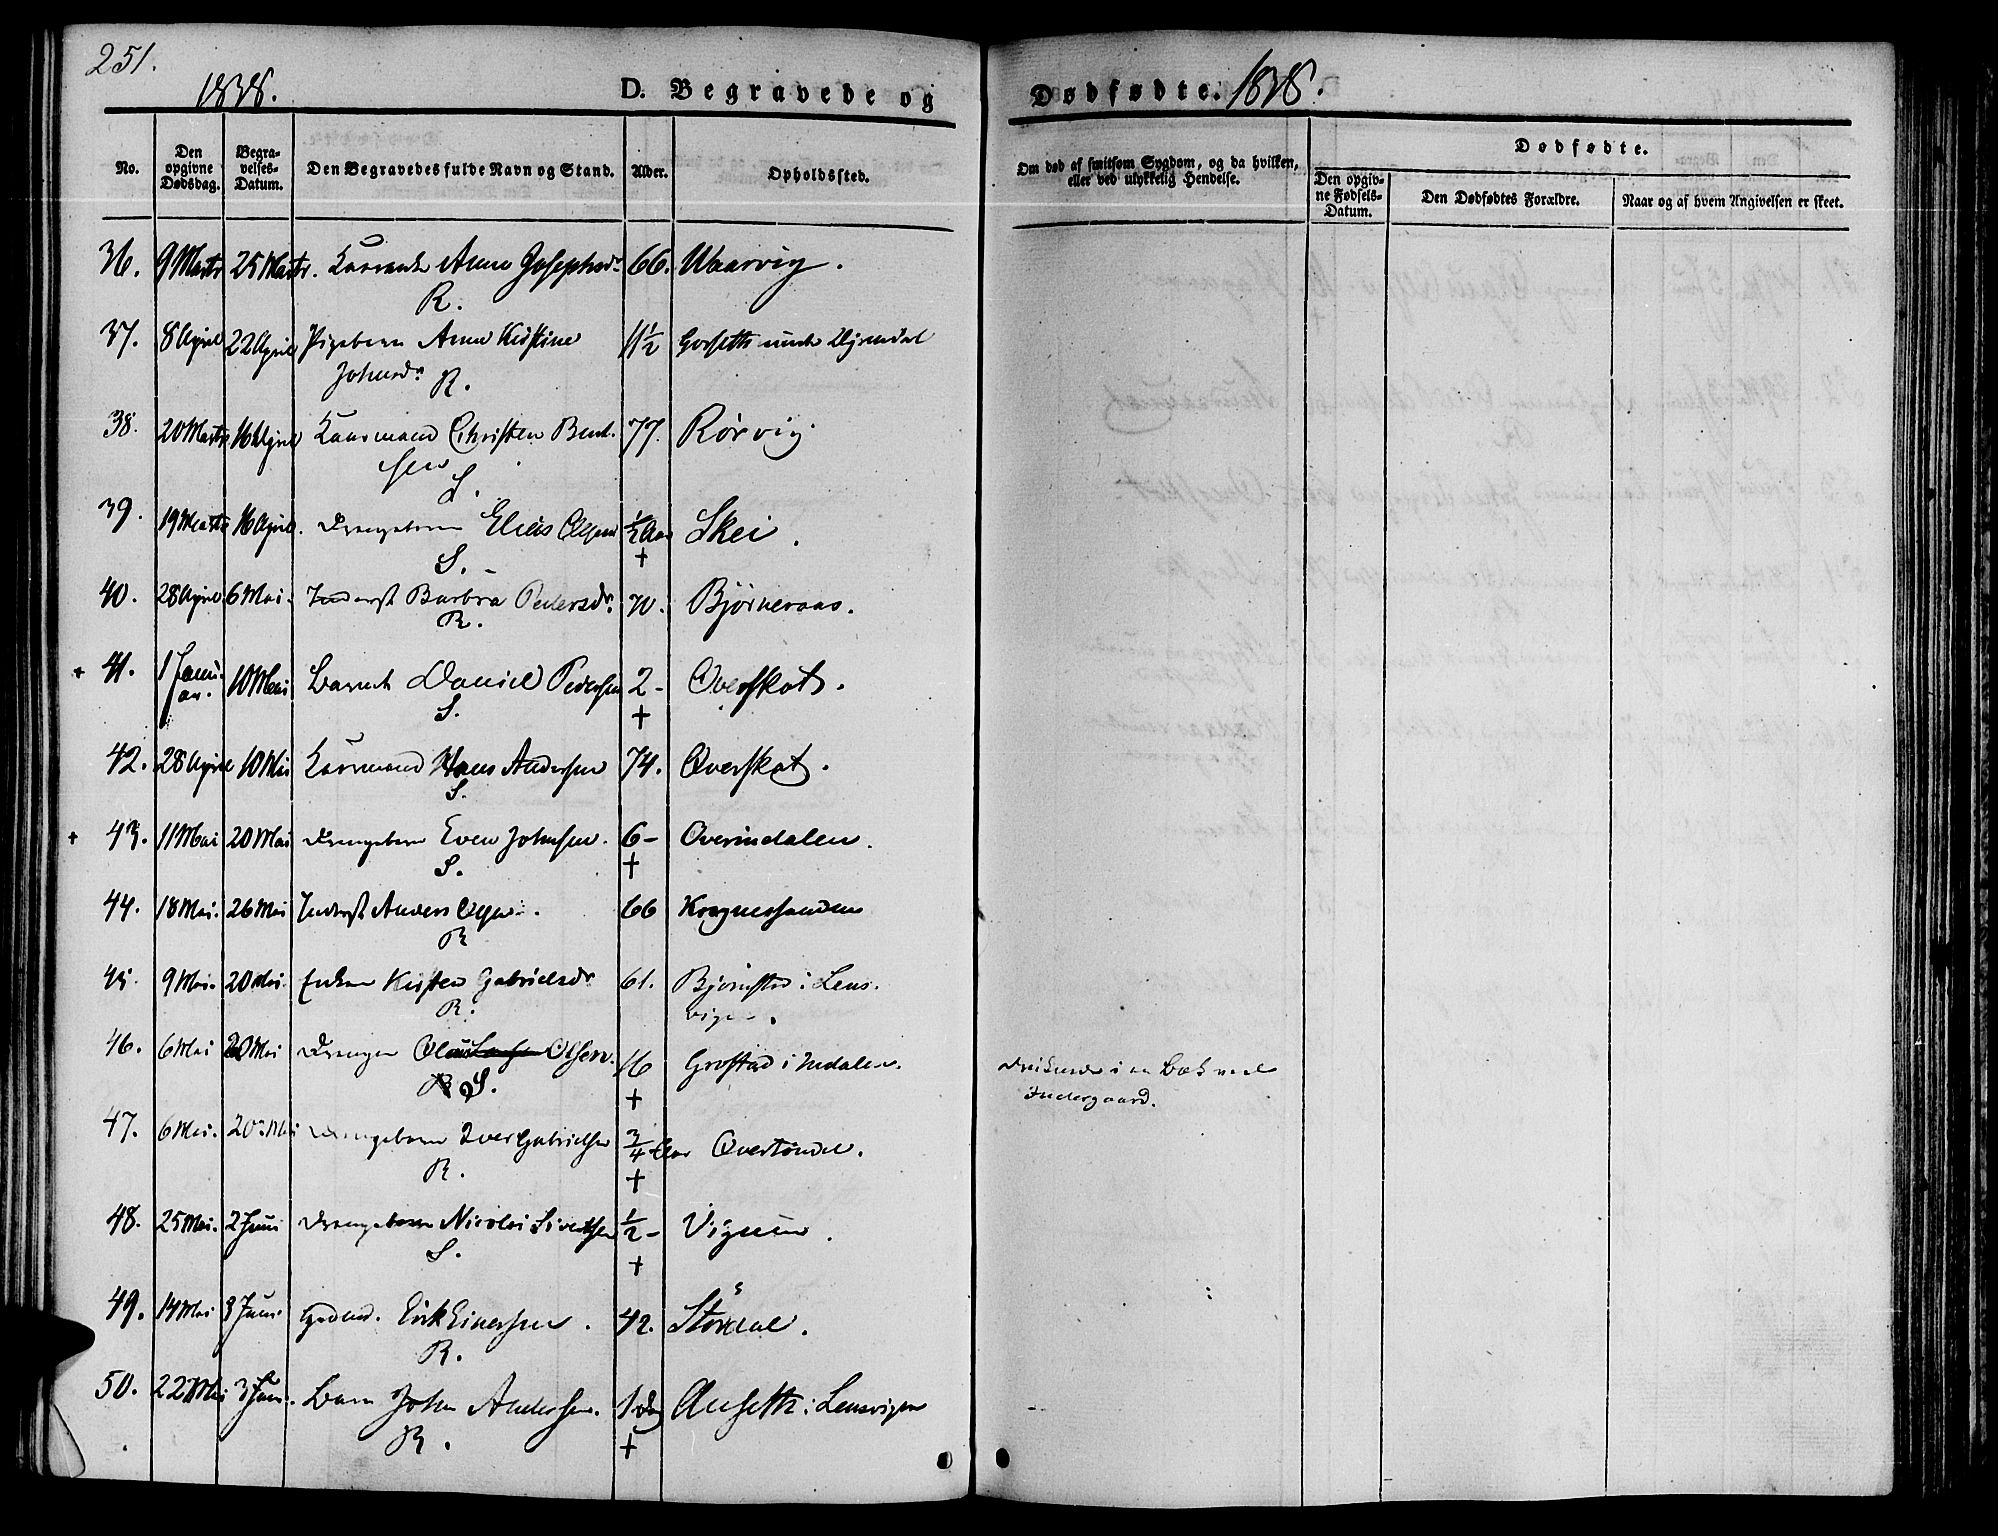 251.
1838.
D. Begravede og
Dødfødte. 1838.
No.
Den opgivne Dødsdag.
Begravelses-Datum.
Den Begravedes fulde Navn og Stand.
Alder.
Opholdssted.
Om død af smitsom Sygdom, og da hvilken, eller ved ulykkelig Hendelse.
Dødfødte.
Den opgivne Fødsels-Datum.
Den Dødfødtes Forældre.
Naar og af hvem Angivelsen er skeet.
36. 9 Marts 25 Marts. Anne Josephsdr. 66. Waarvig.
R.
37. 8 April 22 April Pigebarn Anne Kirstine 11 1/2
Johnsdr. R.
38. 20 Marts 16 April Kaarmand Christen Bent- 77. Rørvig.
sen
S.
39. 19 Marts 16 April. Drengebarn Elias Olsen 1/2 Aar Skei.
S. +
40. 28 April 6 Mai. Inderst Barbra Pedersdr. 70. Bjørneraas.
R.
+ 41. 1 Janu- 10 Mai Barnet Daniel Pedersen 2 - Overskot.
ar. S. +
42. 28 April 10 Mai Kaarmand Hans Andersen 74. Overskot.
S.
+ 43. 11 Mai 20 Mai Drengebarn Even Johnsen. 6 - Overindalen.
S. +
44. 18 Mai. 26 Mai Inderst Anders Olsen. 66 Kragnessanden
R
45. 9 Mai. 20 Mai. Enken Kirsten Gabrielsdr. 61. Bjørnstad i Lens-
R. vigen.
46. 6 Mai 20 Mai Drengen Ola Olsen. 16 Grostad i Indalen. Druknede i en Bæk ved
R S. + Indergaard.
47. 6 Mai. 20 Mai Drengebarn Iver Gabrielsen 3/4 Aar Overtøndel.
R. +
48. 25 Mai. 2 Juni Drengebarn Nicolai Sivertsen 1/2 -
S. +
49. 14 Mai 3 Juni Gdmd. Erik Einersen. 42. Størdal.
R.
50. 22 Mai 3 Juni. Barn John Andersen. 1 Dag Auseth i Lensvigen
R. +